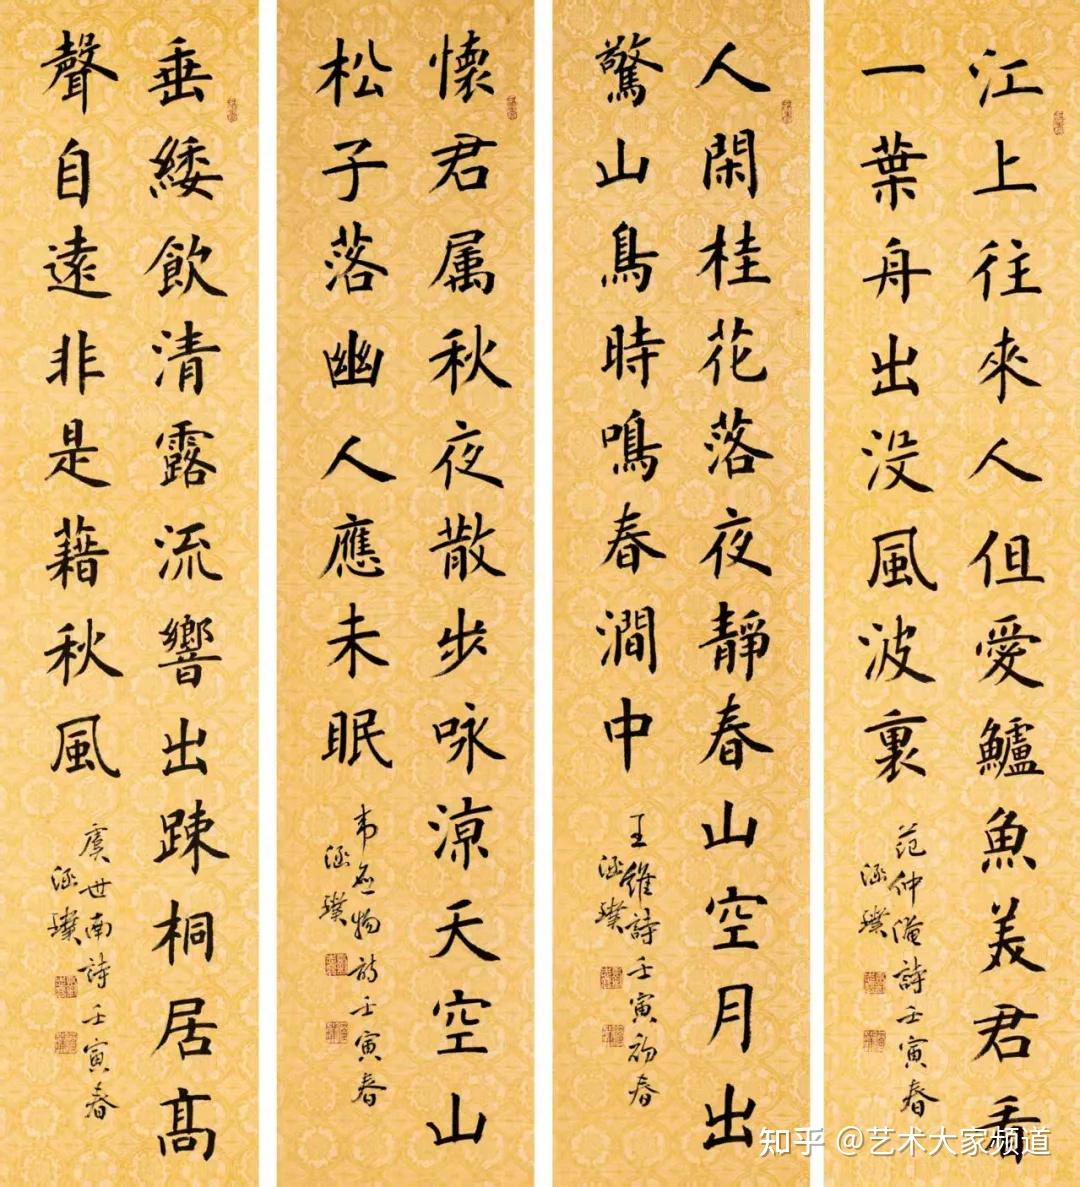 江上往來人但愛鱸魚美君看
一葉舟出没風波裏
范仲淹詩壬寅春
涵璞
人閑桂花落夜靜春山空月出
驚山鳥時鳴春澗中
王維詩壬寅初春
涵璞
懷君属秋夜散步咏涼天空山
松子落幽人應未眠
韦應物詩壬寅春
涵璞
垂緌飲清露流響出踈桐居髙
聲自遠非是藉秋風
虞世南詩壬寅春
涵璞
知乎 @艺术大家频道